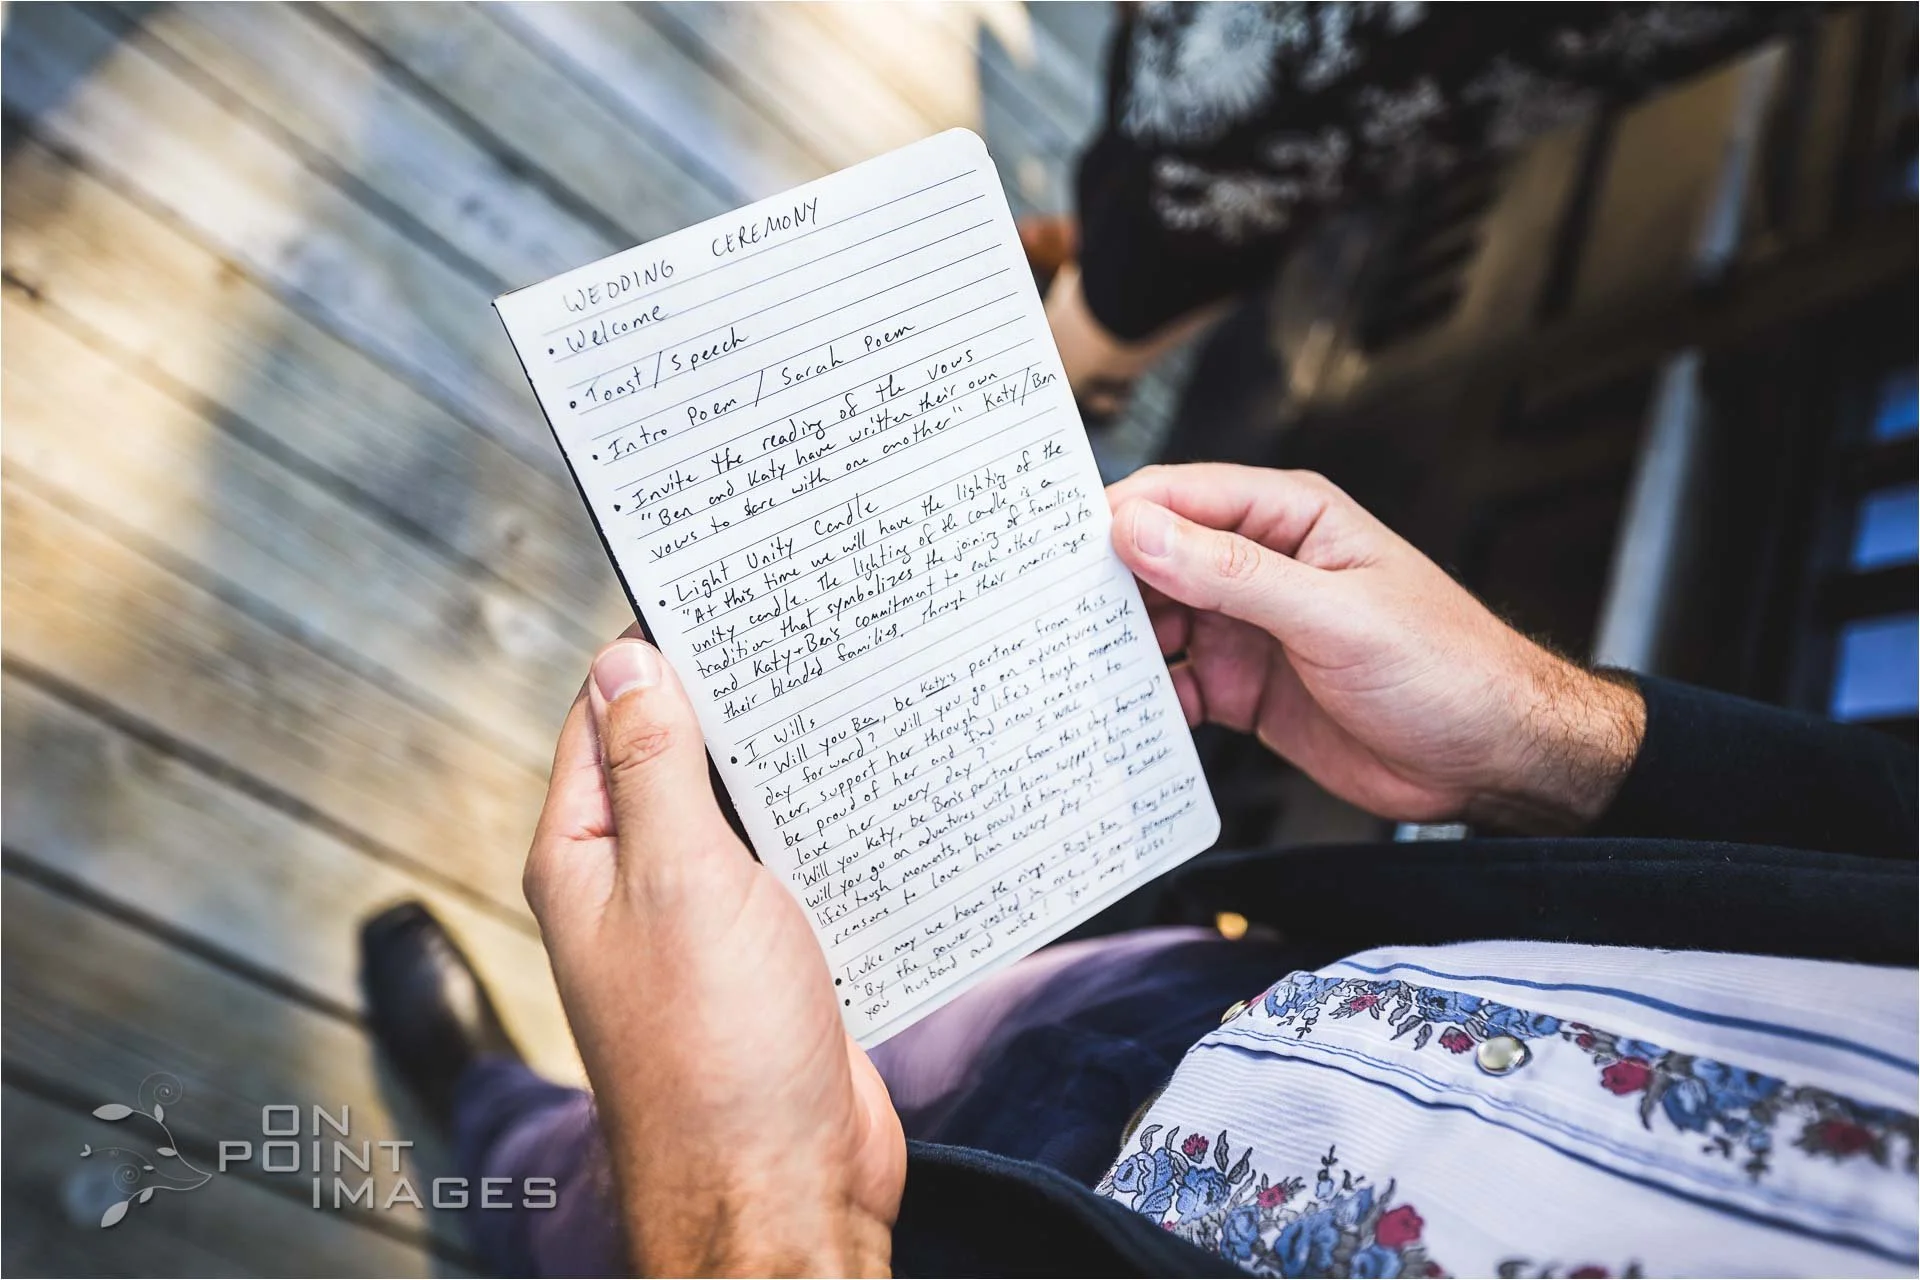 WEDDING CEREMONY
• Welcome
• Toast/Speech
• Intro Poem / Sarah Poem
• Invite the reading of the vows
"Ben and Katy have written their own
vows to share with one another" Katy/Ben
• Light Unity Candle
"At this time we will have the lighting of the
unity candle. The lighting of the candle is a
tradition that symbolizes the joining of families,
and Katy+Ben's commitment to each other and to
their blended families. through their marriage.
• I Wills
"Will you Ben, be Katy's partner from this
day forward? Will you go on adventures with
her, support her through life's tough moments,
be proud of her and find new reasons to
love her every day?" I WILL
"Will you Katy, be Ben's partner from this day forward?
Will you go on adventures with him, support him thru
life's tough moments, be proud of him, and find new
reasons to love him every day?" I WILL
• Luke may we have the rings - Ring to Katy
• "By the power vested in me, I now pronounce
you husband and wife! You may kiss!
ON
POINT
IMAGES